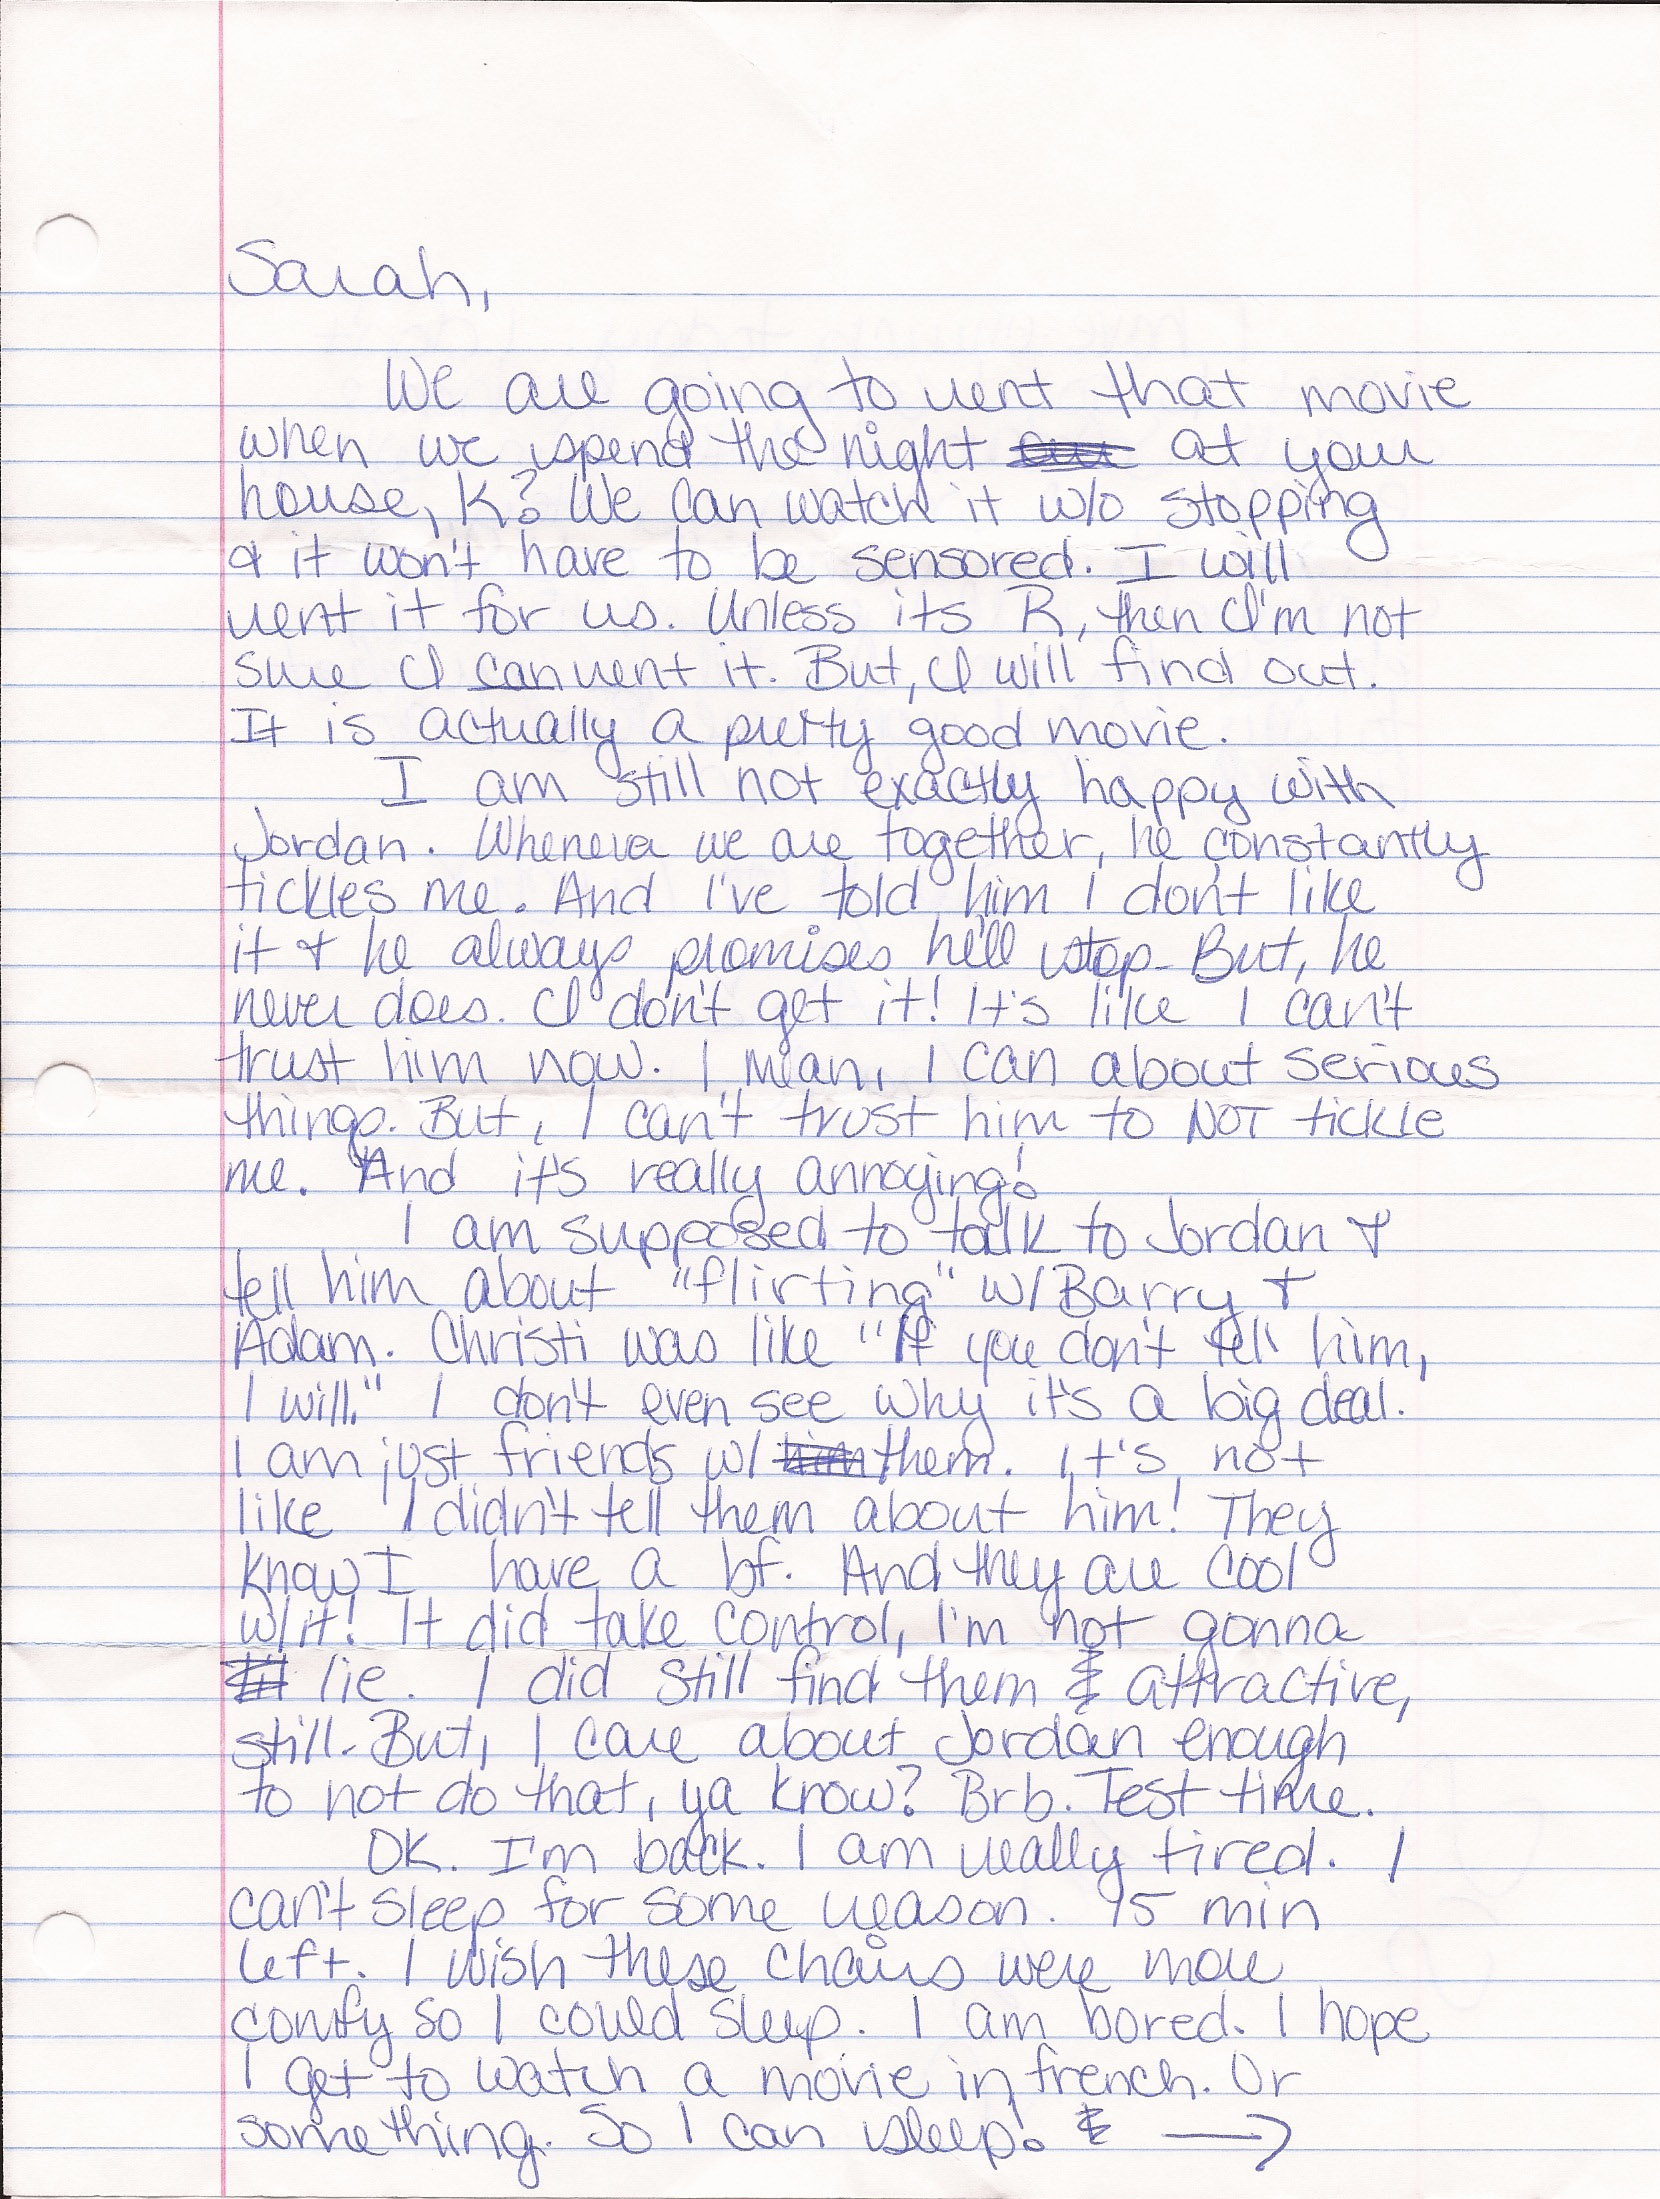 Sarah,
We are going to rent that movie
when we spend the night at your
house, K? We can watch it w/o stopping
& it won't have to be sensored. I will
rent it for us. Unless its R, then I'm not
sure I can rent it. But, I will find out.
It is actually a pretty good movie.
I am still not exactly happy with
Jordan. Whenever we are together, he constantly
tickles me. And I've told him I don't like
it & he always promises he'll stop. But, he
never does. I don't get it! It's like I can't
trust him now. I mean, I can about serious
things. But, I can't trust him to NOT tickle
me. And it's really annoying!
I am supposed to talk to Jordan &
tell him about "flirting" w/ Barry &
Adam. Christi was like "If you don't tell him,
I will." I don't even see why it's a big deal.
I am just friends w/ him them. It's not
like I didn't tell them about him! They
know I have a bf. And they are cool
w/ it! It did take control, I'm not gonna
lie. I did still find them attractive,
still. But, I care about Jordan enough
to not do that, ya know? Brb. Test time.
OK. I'm back. I am really tired. I
can't sleep for some reason. 15 min
left. I wish these chairs were more
comfy so I could sleep. I am bored. I hope
I get to watch a movie in french. Or
something. So I can sleep! →